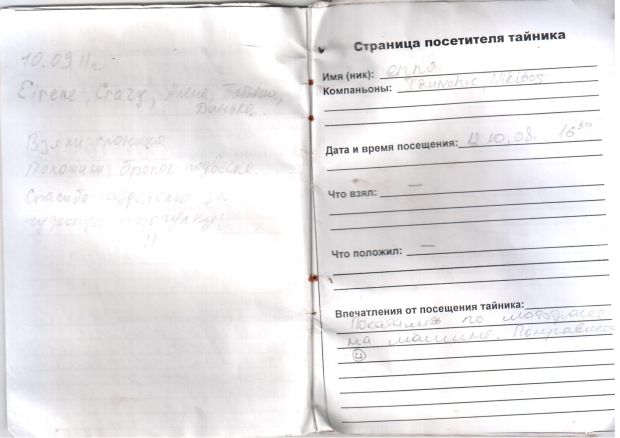 10.09 11г.
Eirene Crazy, Анна, Татьяна,
Данька.
Взяли слоника
Положили брелок подвеску.
Спасибо создателю за
чудесную прогулку!
:)
Страница посетителя тайника
Имя (ник):
Компаньоны: Nikitos
Дата и время посещения: 12.10.08. 16³⁰
Что взял: —
Что положил: —
Впечатления от посещения тайника:
Покатались по мототрассе
на машине. Понравилось
☺